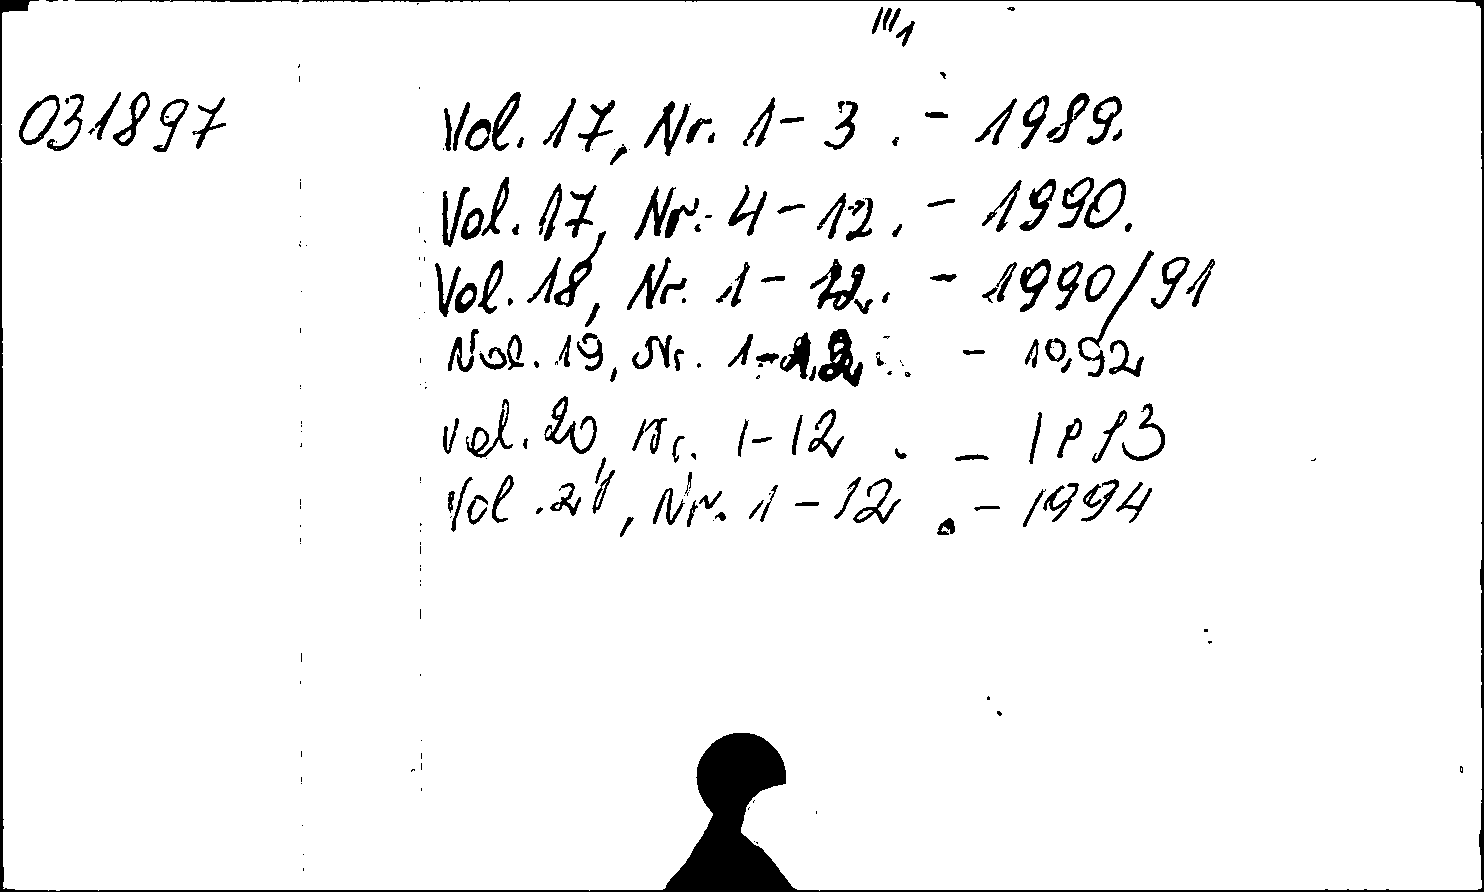 III1
031897
Vol. 17, Nr. 1-3. - 1989.
Vol. 17, Nr. 4-12. - 1990.
Vol. 18, Nr. 1-12. - 1990/91
Vol. 19, Nr. 1-12. - 1992
Vol. 20, Nr. 1-12. - 1993
Vol. 21, Nr. 1-12. - 1994